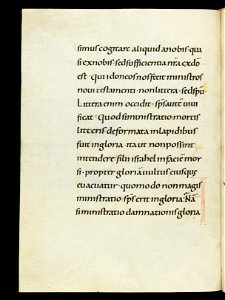 simus cogitare aliquid a nobis · qua
si ex nobis · sed sufficientia nr̄a ex dō
est · Qui idoneos nos fecit ministros
novi testamenti · non littera · sed sp̄u ·
Littera enim occidit · sp̄s autē vivi
ficat · Quod si ministratio mortis
litteris deformata in lapidibus
fuit in gloria · ita ut non possint
intendere filii israhel in faciē moy
si · propter gloriā vultus eius quę
evacuatur · quomodo non magis
ministratio sp̄s erit in gloria · Nā
si ministratio damnationis gloria